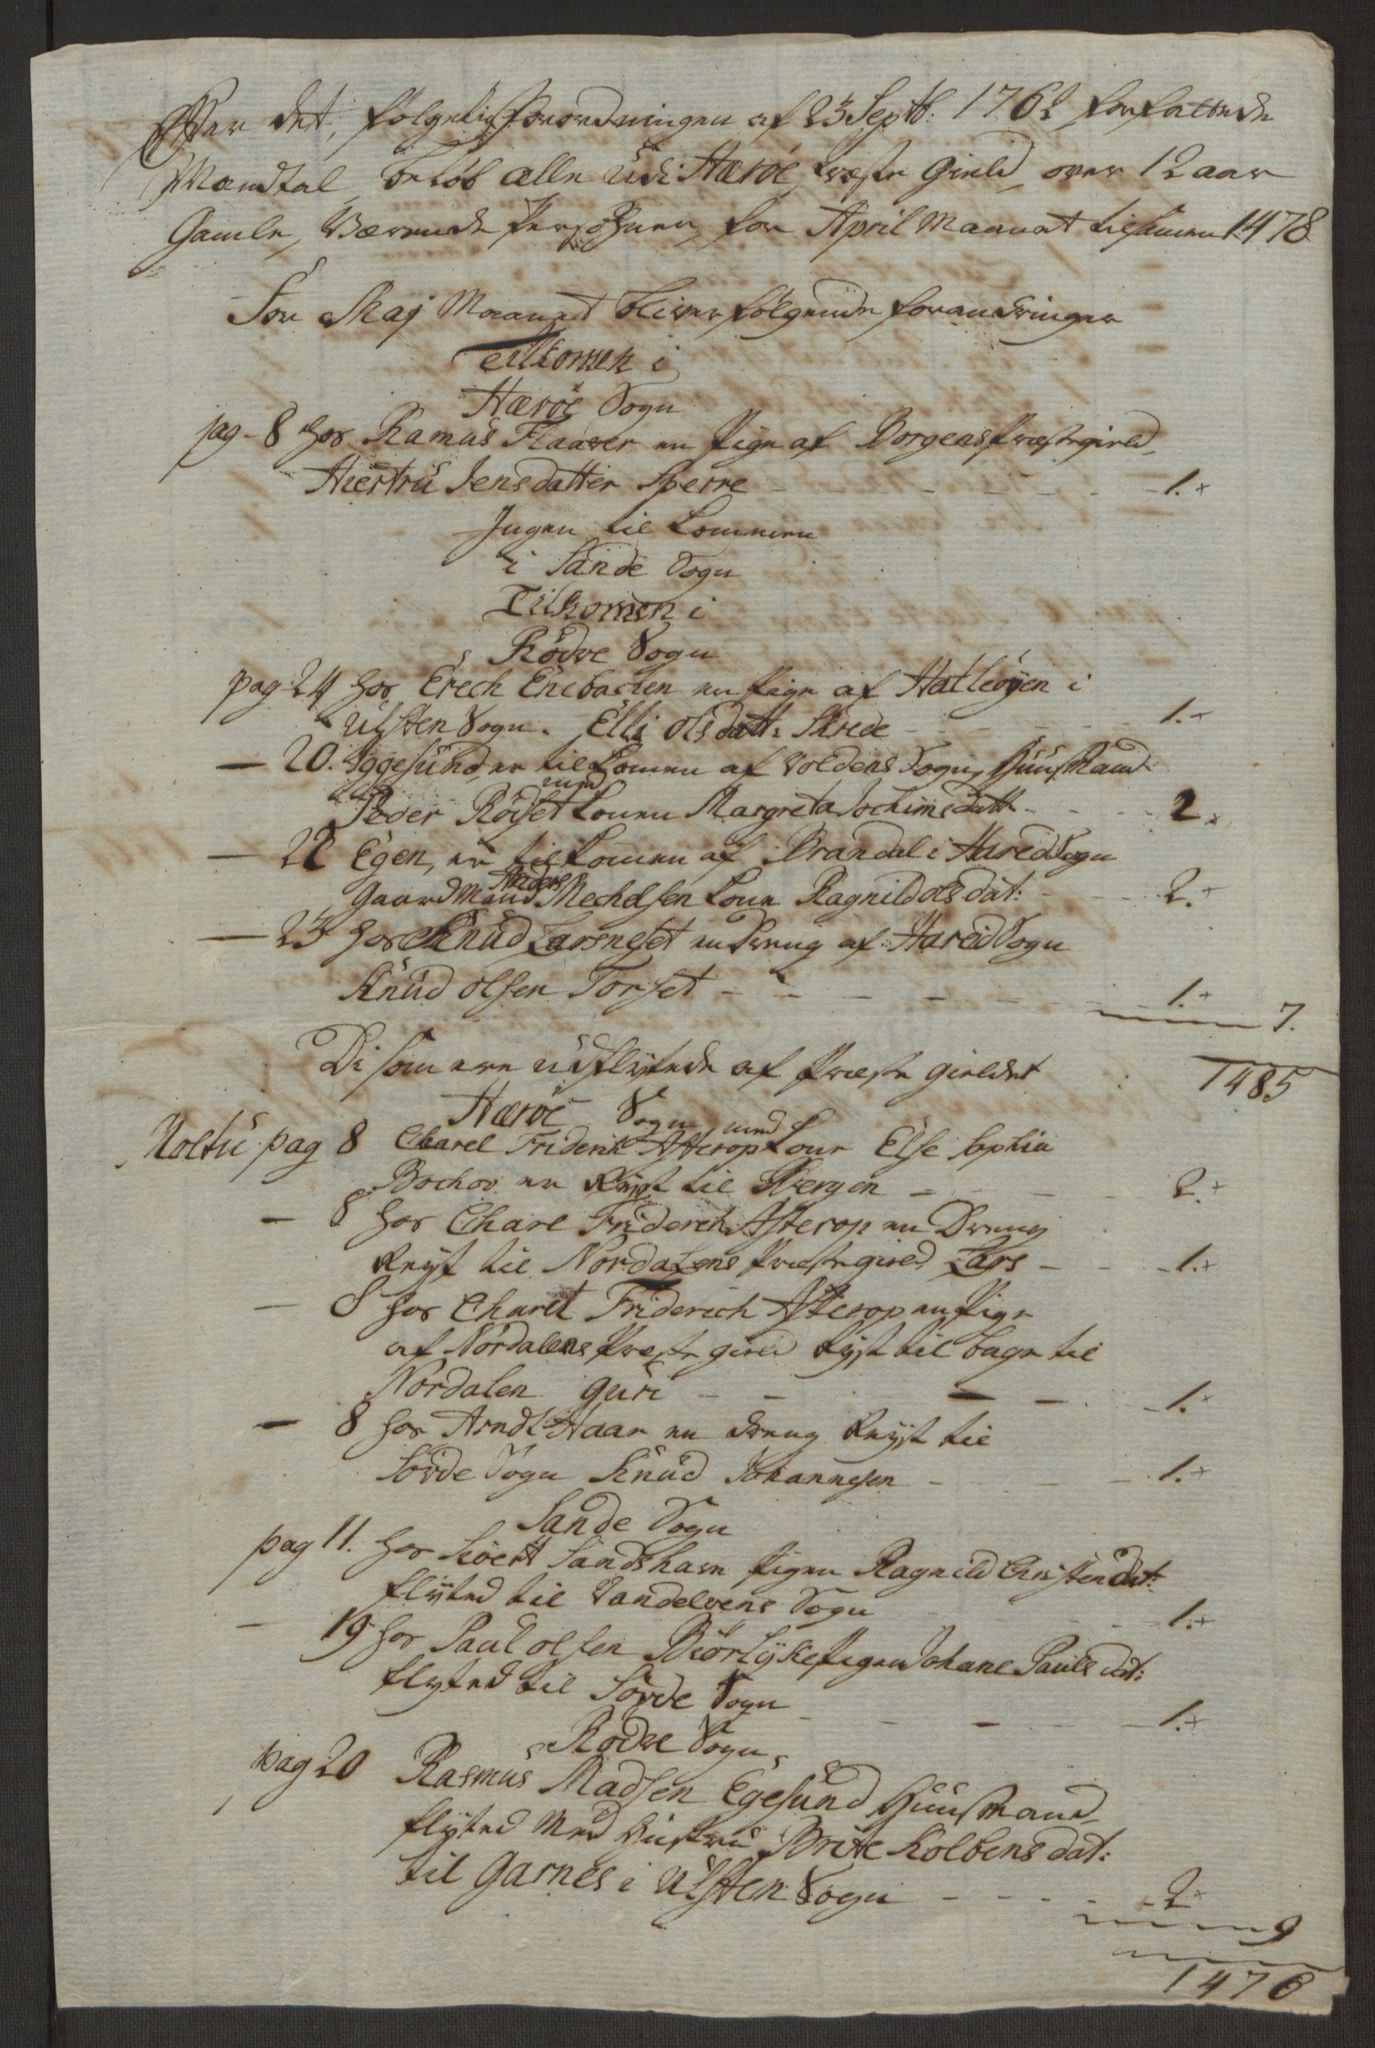 Efter det, følgelig Forordningen af 23 Septb: 1762 forfattede
Mandtal, beløb alle udi Herröe Præste Gield, over 12 aar
Gamle, Værende Persohner, for April Maanet tilsamen 1478
For Maj Maaned bliver følgende forandringer
Tilkomen i
Herröe Sogn
pag - 8 hos Ramus Flaaver en Pige af Borgens Præstegield
Hiertru Jensdatter Sperre - - - - 1.+
Ingen til kommen
i Sande Sogn
Tilkomen i
Rödve Sogn
pag: 24 hos Erech Enebachen en Pige af Hatlevigen i
Ulsten Sogn. Elli Olsdatt: Skrede - - - 1.+
— 20. Iggesund, er tilkomen af Voldens Sogn, Huusmand
Peder Rödset med Konen Margreta Jochimsdatt - - - 2.
— 22 Egen, er tilkomen af Brandal i Hareid Sogn
Gaardmand Anders Mechelsen Kone Ragnild Olsdat: - - 2.+
— 23 hos Knud Larsneset en Dreng af Hareid Sogn
Knud Olsen Torset - - - - - 1.+
7.
De som ere udflytede af Præste gieldet 1485
Herröe Sogn
Moltu pag 8 Charel Friderik Asterop med Kone Else Sophia
Bochov er Reyst til Bergen - - - - 2.+
— 8 hos Charl Friderich Asterop en Dreng
Reyst til Nordalens Præstegield Lars - - - 1.+
— 8 hos Charel Friderich Asterop en Pige
af Nordalens Præstegield Reyst tilbage til
Nordalen Guri - - - - 1.+
— 8 hos Arndt Haar en dreng Reyst til
Sövde Sogn Knud Johannesen - - - 1.+
Sande Sogn
pag 11. hos Siöert Sandshavn Pigen Ragnild Christendat:
flyted til Vandelvens Sogn - - 1.+
— 19 hos Paul Olsen Biörlyke Pigen Johane Pauls dat:
flyted til Sövde Sogn - - - - 1.+
Rödve Sogn
pag 20 Rasmus Madsen Egesund Huusmand,
flyted Med Hustru Brite Kolbensdat:
til Garnes i Ulsten Sogn - - - - 2+
9
1476